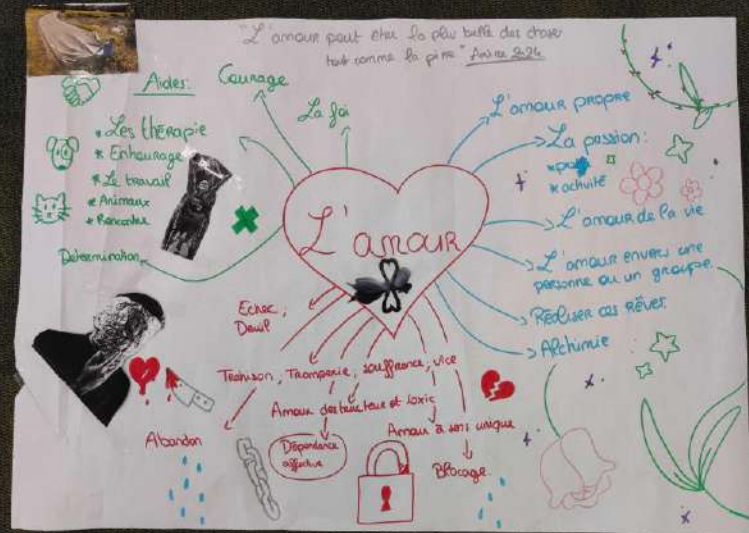 "L'amour peut être la plus belle des choses
tout comme la pire"
Aides:
Courage
La foi
* Les thérapie
* Entourage
* Le travail
* Animaux
* Rencontre
Determination
L'amour
L'amour propre
La passion:
* activité
L'amour de la vie
L'amour envers une
personne ou un groupe.
Réaliser ces rêves.
Alchimie
Echec,
Deuil
Trahison, Tromperie, souffrance, vice
Amour destructeur et toxic
Abandon
Dépendance
affective
Amour à sens unique
Blocage.